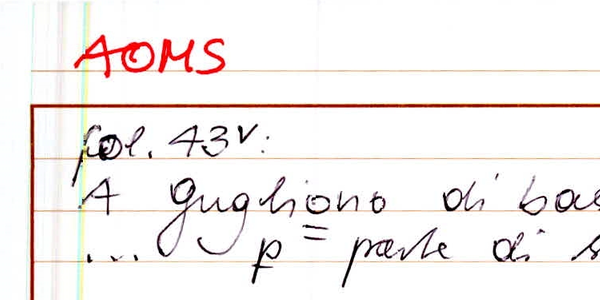 AOMS
fol. 43v:
A Gugliono di bas
... p = parte di s